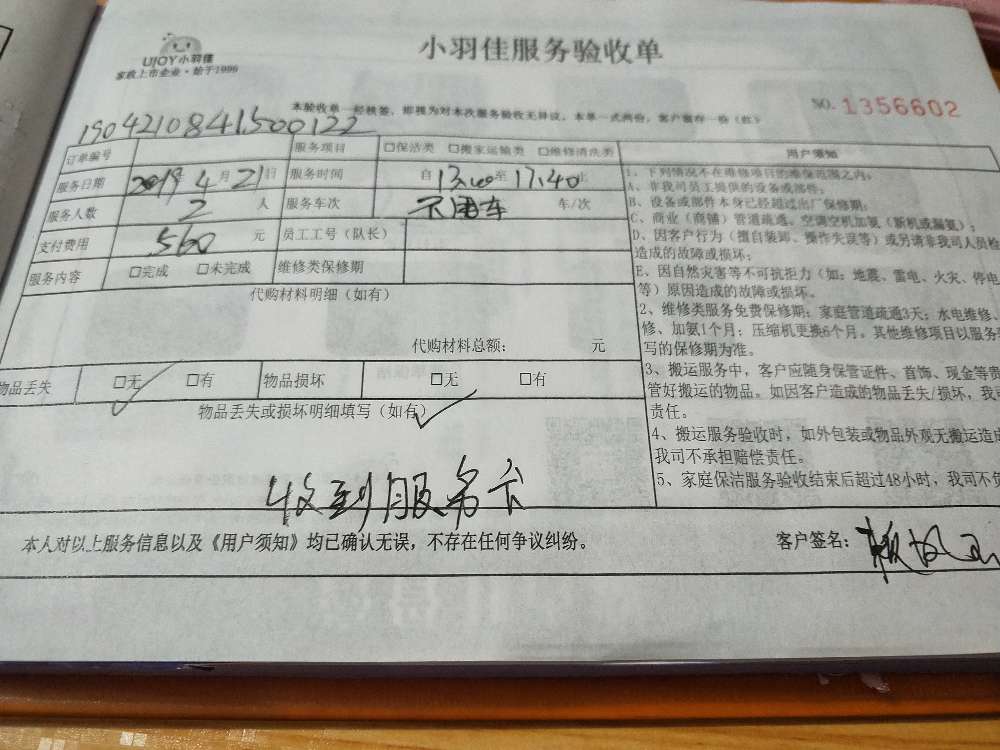 UJOY小羽佳
家政上市企业·始于1996
小羽佳服务验收单
本验收单一经核签,即视为对本次服务验收无异议,本单一式两份,客户留存一份(红)
NO. 1356602
1904210841500122
订单编号 服务项目 □保洁类 □搬家运输类 □维修清洗类
服务日期 2019年 4 月 21日 服务时间 自 13:00至 17:40止
服务人数 2 人 服务车次 不用车 车/次
支付费用 560 元 员工工号(队长)
服务内容 □完成 □未完成 维修类保修期
代购材料明细(如有)
代购材料总额: 元
物品丢失 □无 □有 物品损坏 □无 □有
物品丢失或损坏明细填写(如有)
收到服务卡
用户须知
1、下列情况不在维修项目的维保范围之内:
A、非我司员工提供的设备或部件;
B、设备或部件本身已经超过出厂保修期;
C、商业(商铺)管道疏通、空调空机加氨(新机或漏氨);
D、因客户行为(擅自装卸、操作失误等)或另请非我司人员检
造成的故障或损坏;
E、因自然灾害等不可抗拒力(如:地震、雷电、火灾、停电
等)原因造成的故障或损坏。
2、维修类服务免费保修期:家庭管道疏通3天;水电维修、
修、加氨1个月;压缩机更换6个月。其他维修项目以服务
写的保修期为准。
3、搬运服务中,客户应随身保管证件、首饰、现金等贵
管好搬运的物品。如因客户造成的物品丢失/损坏,我
责任。
4、搬运服务验收时,如外包装或物品外观无搬运造成
我司不承担赔偿责任。
5、家庭保洁服务验收结束后超过48小时,我司不负
本人对以上服务信息以及《用户须知》均已确认无误,不存在任何争议纠纷。
客户签名: